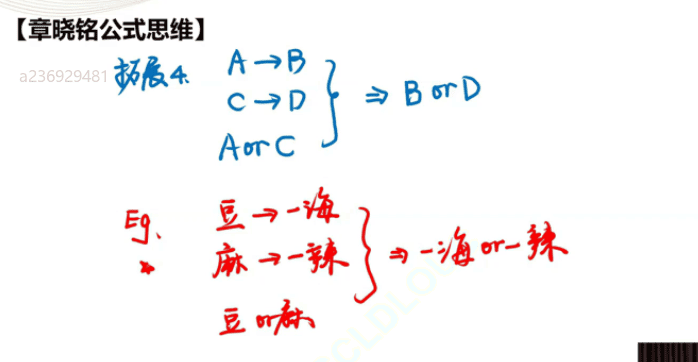 【章晓铭公式思维】
a236929481
拓展4.
A→B
C→D
AorC
⇒ B or D
Eg.
豆→一海
麻→一辣
豆or麻
⇒ 一海 or 一辣